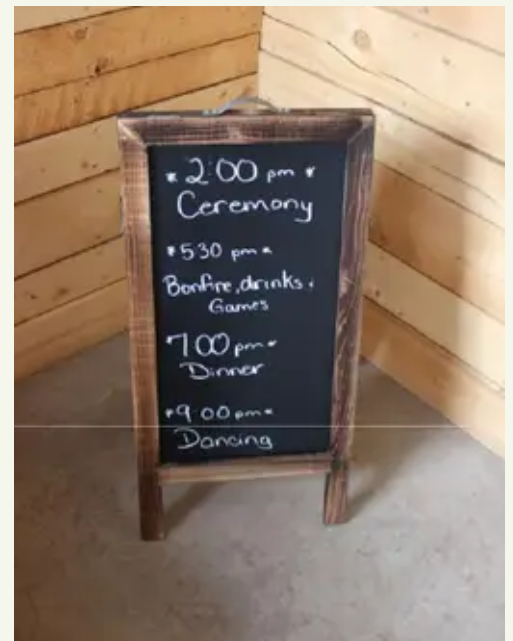 * 2:00 pm *
Ceremony
* 530 pm *
Bonfire, drinks +
Games
* 7 00 pm *
Dinner
* 9 00 pm *
Dancing